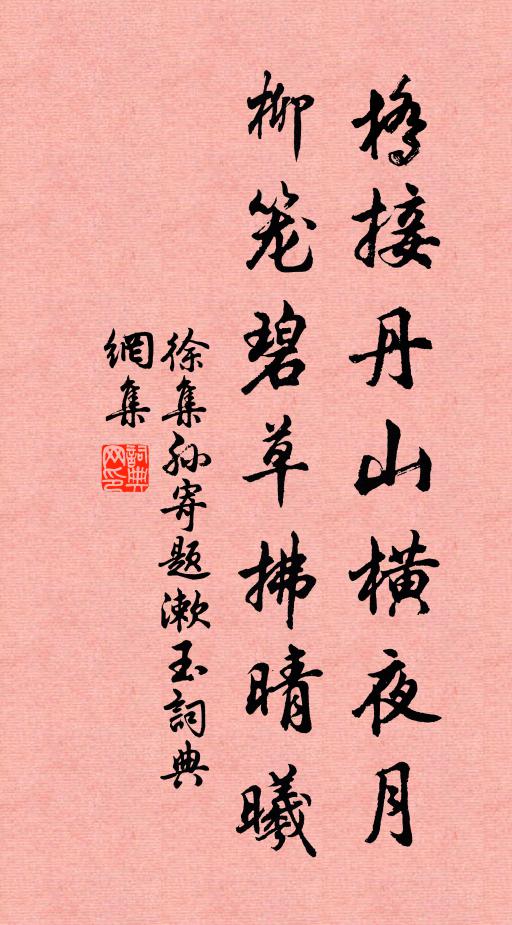 橋接丹山橫夜月
柳笼碧草拂晴曦
徐集孙寄题漱玉詞典
網集
詞典网印